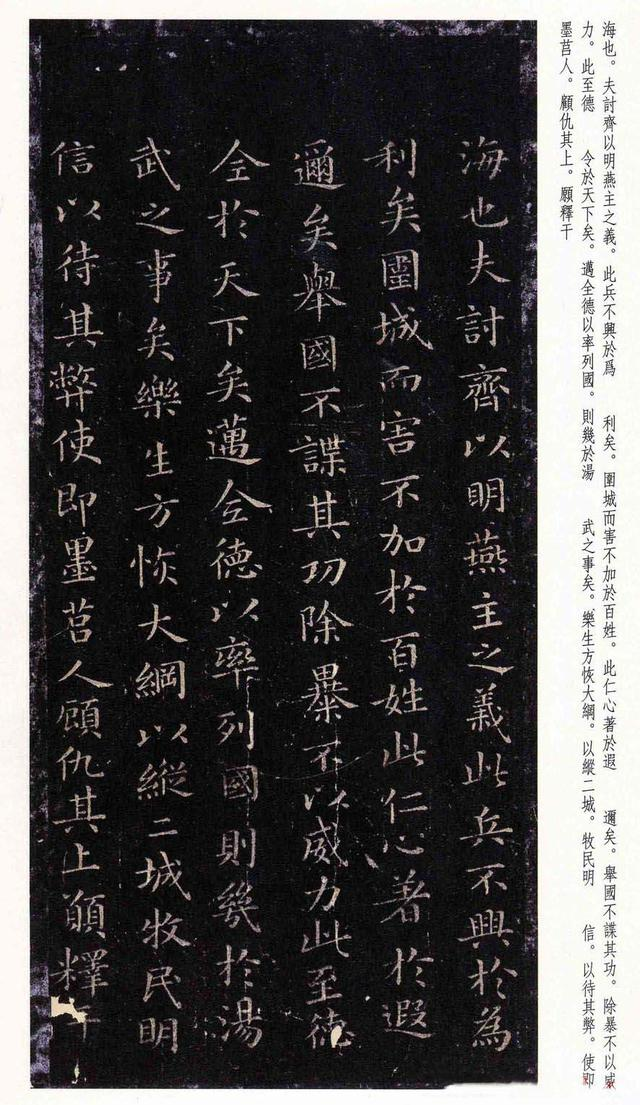 海也。夫討齊以明燕主之義。此兵不興於爲　利矣。圍城而害不加於百姓。此仁心著於遐　邇矣。舉國不諜其功。除暴不以威
力。此至德　令於天下矣。邁全德以率列國。則幾於湯　武之事矣。樂生方恢大綱。以縱二城。牧民明　信。以待其弊。使即
墨莒人。顧仇其上。願釋干
海也夫討齊以明燕主之義此兵不興於為
利矣圍城而害不加於百姓此仁心著於遐
邇矣舉國不諜其功除暴不以威力此至德
全於天下矣邁全德以率列國則幾於湯
武之事矣樂生方恢大綱以縱二城牧民明
信以待其弊使即墨莒人顧仇其上願釋干